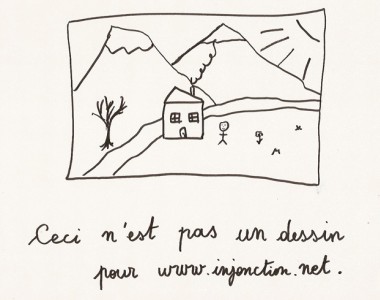 Ceci n'est pas un dessin
pour www.injonction.net.